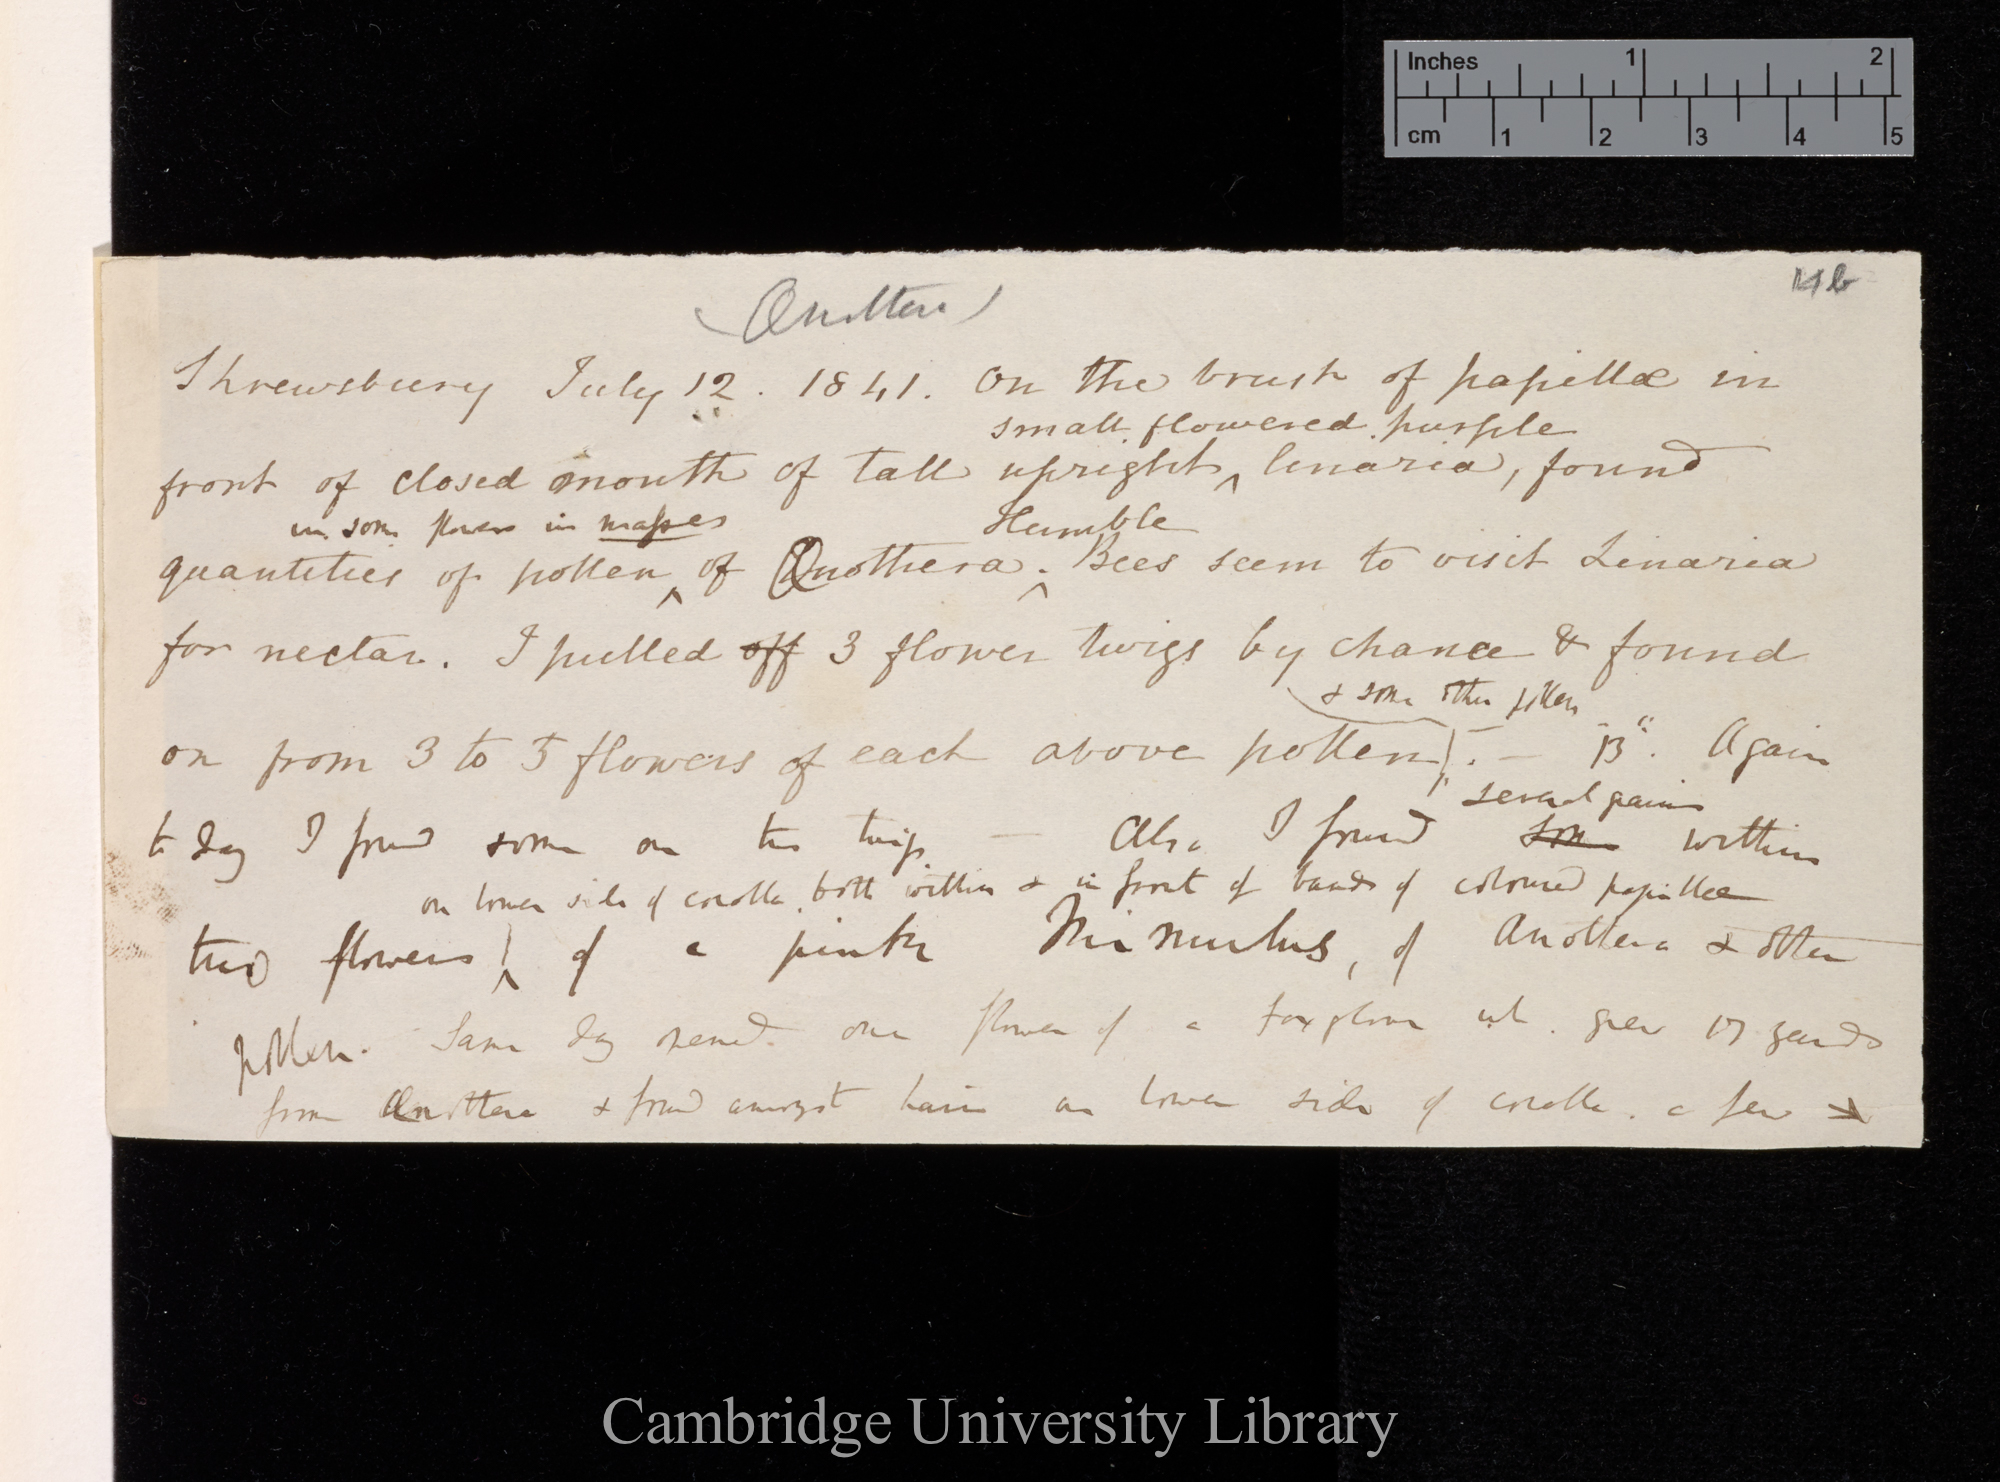 Inches 1 2
cm 1 2 3 4 5
14b
(Œnothera)
Shrewsbury July 12. 1841. On the brush of papillæ in
small flowered purple
front of closed mouth of tall upright ^ linaria, found
in some flowers in masses Humble
quantities of pollen ^ of Œnothera. ^ Bees seem to visit Linaria
for nectar. I pulled off 3 flower twigs by chance & found
& some other pollen
on from 3 to 5 flowers of each above pollen). — 13th. Again
several grains
to day I found some on two twigs — Also I found some within
on lower side of corolla, both within & in front of bands of coloured papillæ
two flowers ^ of a pink Mimulus, of Œnothera & other
pollen. Same day opened one flower of a foxglove wh. grew 17 yards
from Œnothera & found amongst hairs on lower side of corolla, a few
Cambridge University Library